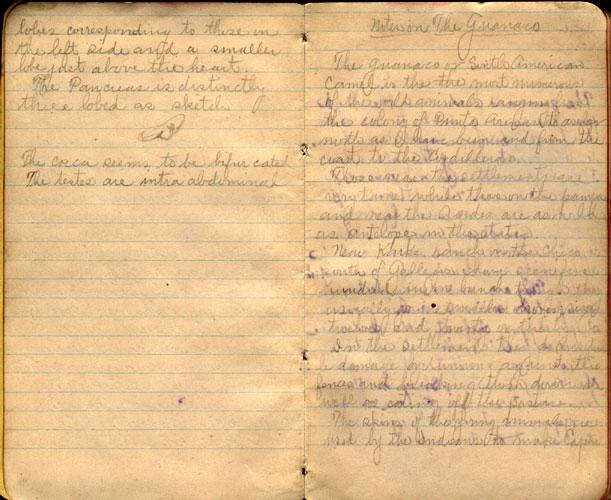 lobes corresponding to those in
the left side and a smaller
lobe just above the heart.
The Pancreas is distinctly
three lobed as sketch
The coeca seems to be bifurcated
The testes are intra abdominal
Notes on The Guanaco
The guanaco or South American
Camel is the the most numerous
of the wild animals ranging from
the colony of Punta Arenas to as far
north as I have been and from the
coast to the Cordilleras.
Those near the settlements are
very tame while those on the pampas
and near the Andes are as wild
as antelope in the states.
Near ranch on the Chico
south of Gallegos I have seen five
hundred in one bunch though the
usually in smaller
and
In the settlements they do
damage by running against the
fences and breaking them down as
well as eating off the pasture.
The skins of the young animals are
used by the Indians to make Capas